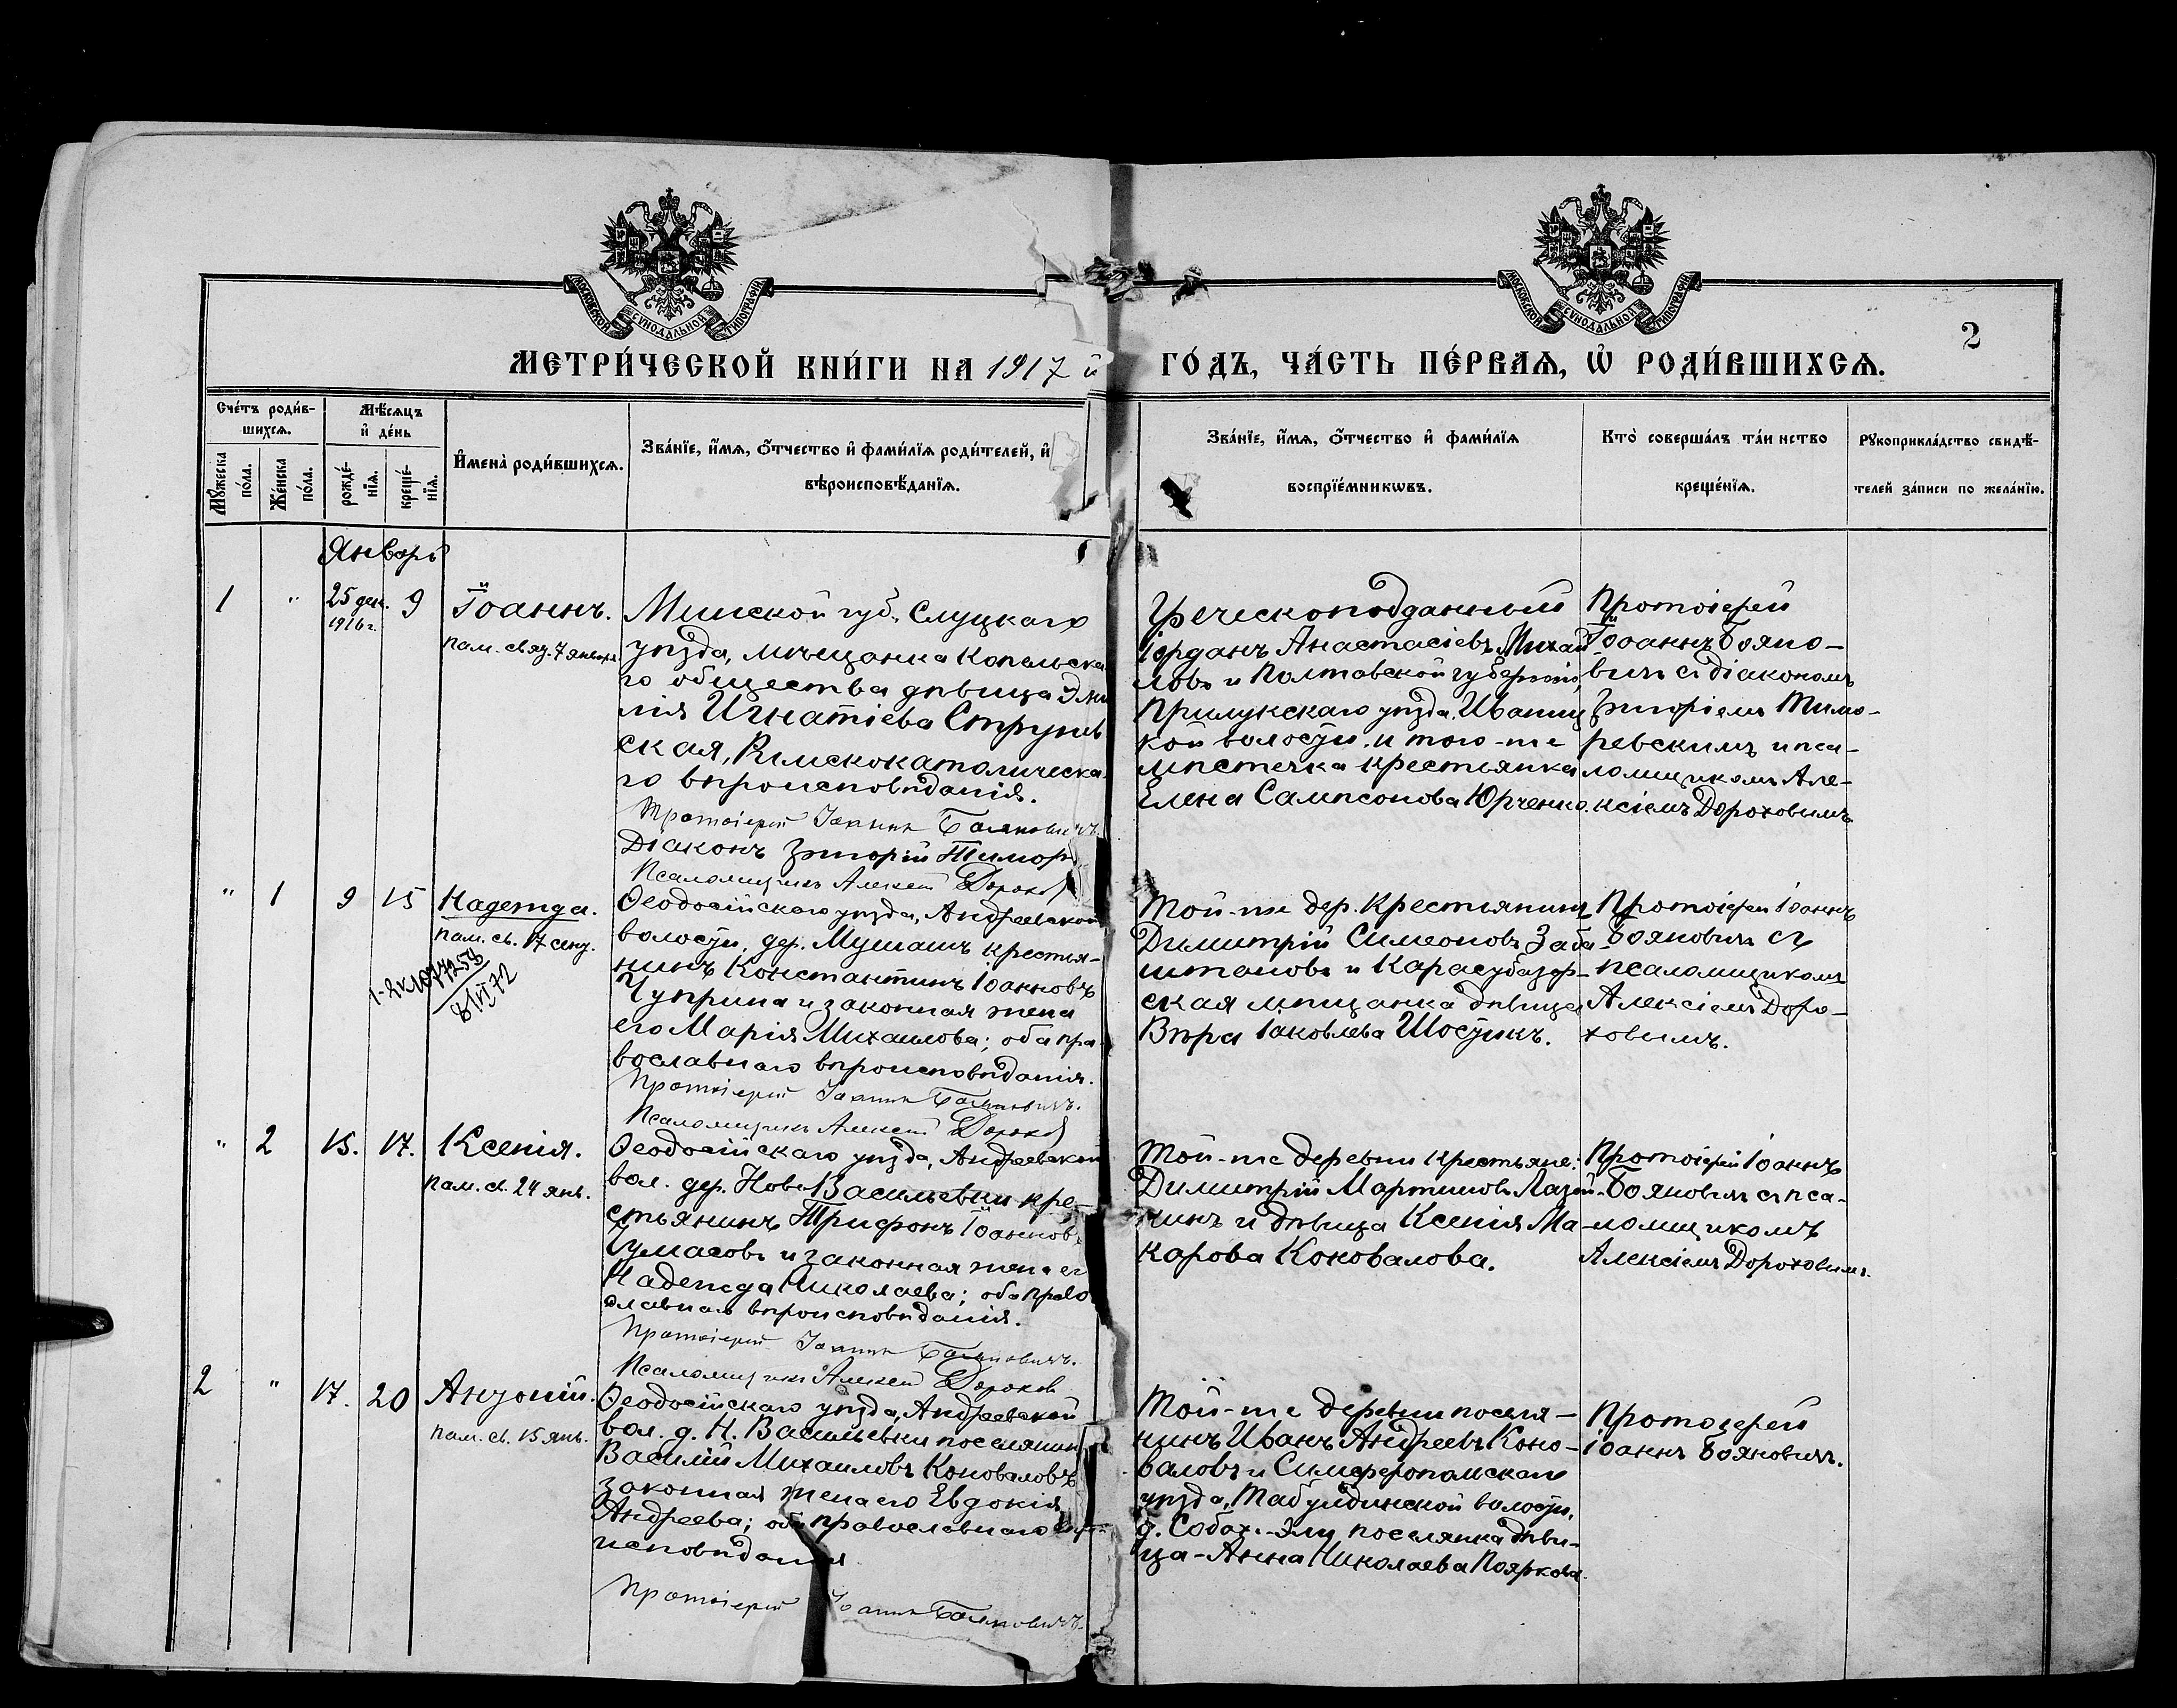 МОСКОВСКОЙ СУНОДАЛЬНОЙ ТИПОГРАФІИ
МОСКОВСКОЙ СУНОДАЛЬНОЙ ТИПОГРАФІИ
2
МЕТРИ́ЧЕСКОЙ КНИ́ГИ НА 1917 й
ГО́ДЪ, ЧА́СТЬ ПЕ́РВАѦ, Ѡ҆ РОДИ́ВШИХСѦ.
Сче́тъ роди́в-
шихсѧ.
Мꙋжеска
по́ла.
Же́нска
по́ла.
Мѣ́сѧцъ
и҆ де́нь
рожде́-
нїѧ.
креще́-
нїѧ.
И҆мена̀ роди́вшихсѧ.
Зва́нїе, и҆́мѧ, ѻ҆́тчество и҆ фами́лїѧ роди́телей, и҆
вѣроисповѣ́данїѧ.
Зва́нїе, и҆́мѧ, ѻ҆́тчество и҆ фами́лїѧ
воспрїе́мникѡвъ.
Кто̀ соверша́лъ та́инство
креще́нїѧ.
Рꙋкоприкла́дство свидѣ́-
телей за́писи по жела́нїю.
Январь
1 " 25 дек. 9
1916 г.
Іоаннъ.
пам. св. яз. 7 января
Минской губ. Слуцкаго
уѣзда, мѣщанка Копыльска
го общества дѣвица Эми
лія Игнатіева
ская, Римскокатолическа-
го вѣроисповѣданія.
Протоіерей Іоаннъ Бояновичъ.
Діаконъ Григорій Тимор
Псаломщикъ Алексей Дорохов
Греческоподданный
Іорданъ Анастасіевъ Михай-
ловъ и Полтавской губерніи,
Прилукскаго уѣзда, Иваниц
кой волости, и того-же
мѣстечка крестьянка
Елена Сампсонова Юрченко.
Протоіерей
Іоаннъ Бояно-
вичъ съ діакономъ
Григоріемъ Тимо-
ревскимъ и пса-
ломщикомъ Але-
ксіемъ Дороховымъ
" 1 9 15
Надежда.
пам. св. 17 сент.
8/VI 72
Ѳеодосійскаго уѣзда, Андреевской
волости, дер. Мушашъ крестья-
нинъ Константинъ Іоанновъ
Чуприна и законная жена
его Марія Михаилова; оба пра
вославнаго вѣроисповѣданія.
Протоіерей Іоаннъ Бояновичъ.
Псаломщикъ Алексей Дорохов
Той-же дер. крестьянинъ
Димитрій Симеоновъ Заба-
штановъ и Карасубазар-
ская мѣщанка дѣвица
Вѣра Іаковлева Шостикъ.
Протоіерей Іоаннъ
Бояновичъ съ
псаломщикомъ
Алексіемъ Доро-
ховымъ.
" 2 15. 17.
Ксенія.
пам. св. 24 янв.
Ѳеодосійскаго уѣзда, Андреевской
вол. дер. Ново-Васильевки кре-
стьянинъ Трифонъ Іоанновъ
Чумасовъ и законная жена ег
Надежда Николаева; оба право
славнаго вѣроисповѣданія.
Протоіерей Іоаннъ Бояновичъ.
Псаломщикъ Алексей Дорохов
Той-же деревни крестьяне:
Димитрій Мартиновъ Лазы-
кинъ и дѣвица Ксенія Ма-
карова Коновалова.
Протоіерей Іоаннъ
Бояновичъ съ пса-
ломщикомъ
Алексіемъ Дороховымъ.
2 " 17. 20
Антоній.
пам. св. 15 янв.
Ѳеодосійскаго уѣзда, Андреевской
вол. д. Н. Васильевки поселянин
Василій Михаиловъ Коноваловъ
законная жена его Евдокія
Андреева; оба православнаго вѣро
исповѣданія
Протоіерей Іоаннъ Бояновичъ.
Той-же деревни поселя-
нинъ Иванъ Андреевъ Коно-
валовъ и Симферопольскаго
уѣзда, Табулдинской волости,
д. Собах-Эли поселянка дѣви-
ца - Анна Николаева Пояркова.
Протоіерей
Іоаннъ Бояновичъ.